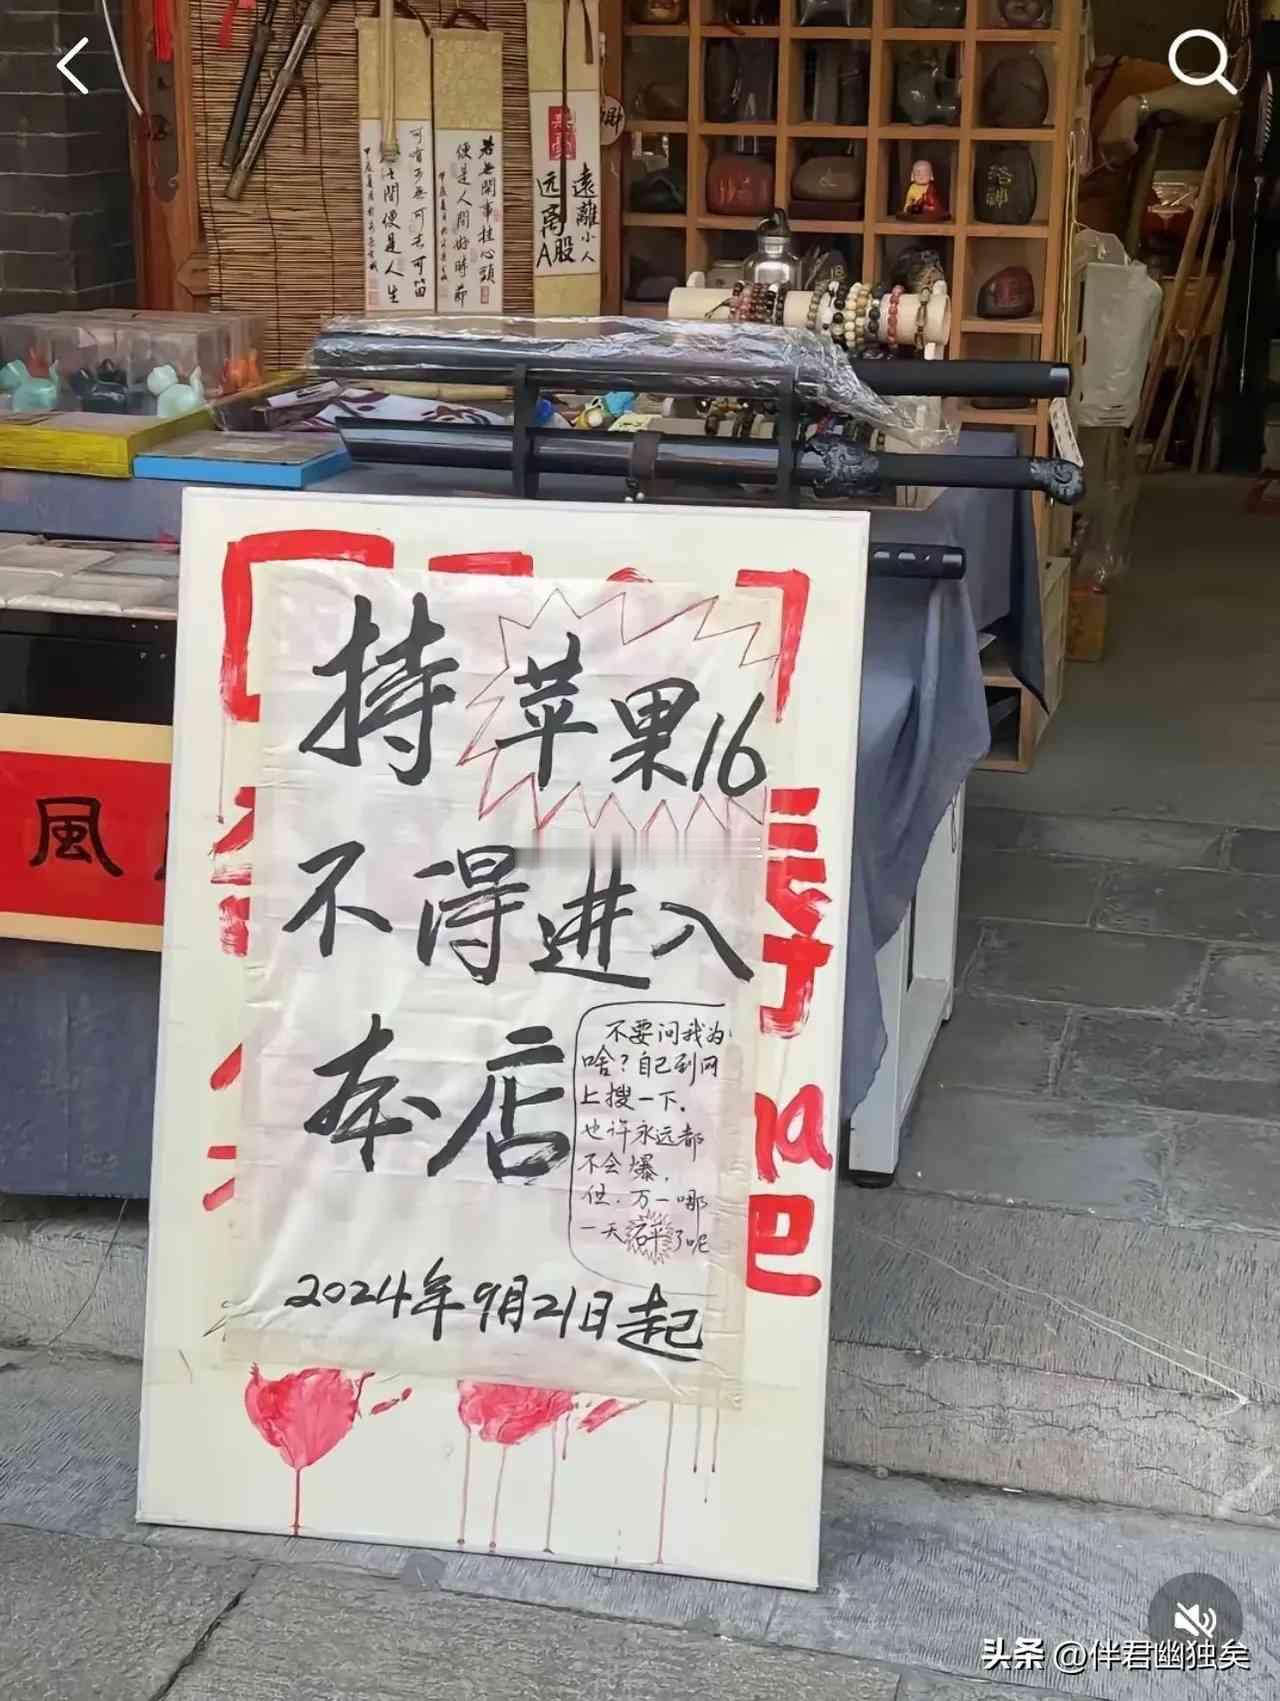 若無閑事挂心頭
便是人間好時節
可有可無可去可留
遠離小人
远离A股
風
持苹果16
不得进入
本店
不要问我为
啥？自己到网
上搜一下。
也许永远都
不会爆，
但.万一哪
一天砰了呢
2024年9月21日起
吧
头条 @伴君幽独矣